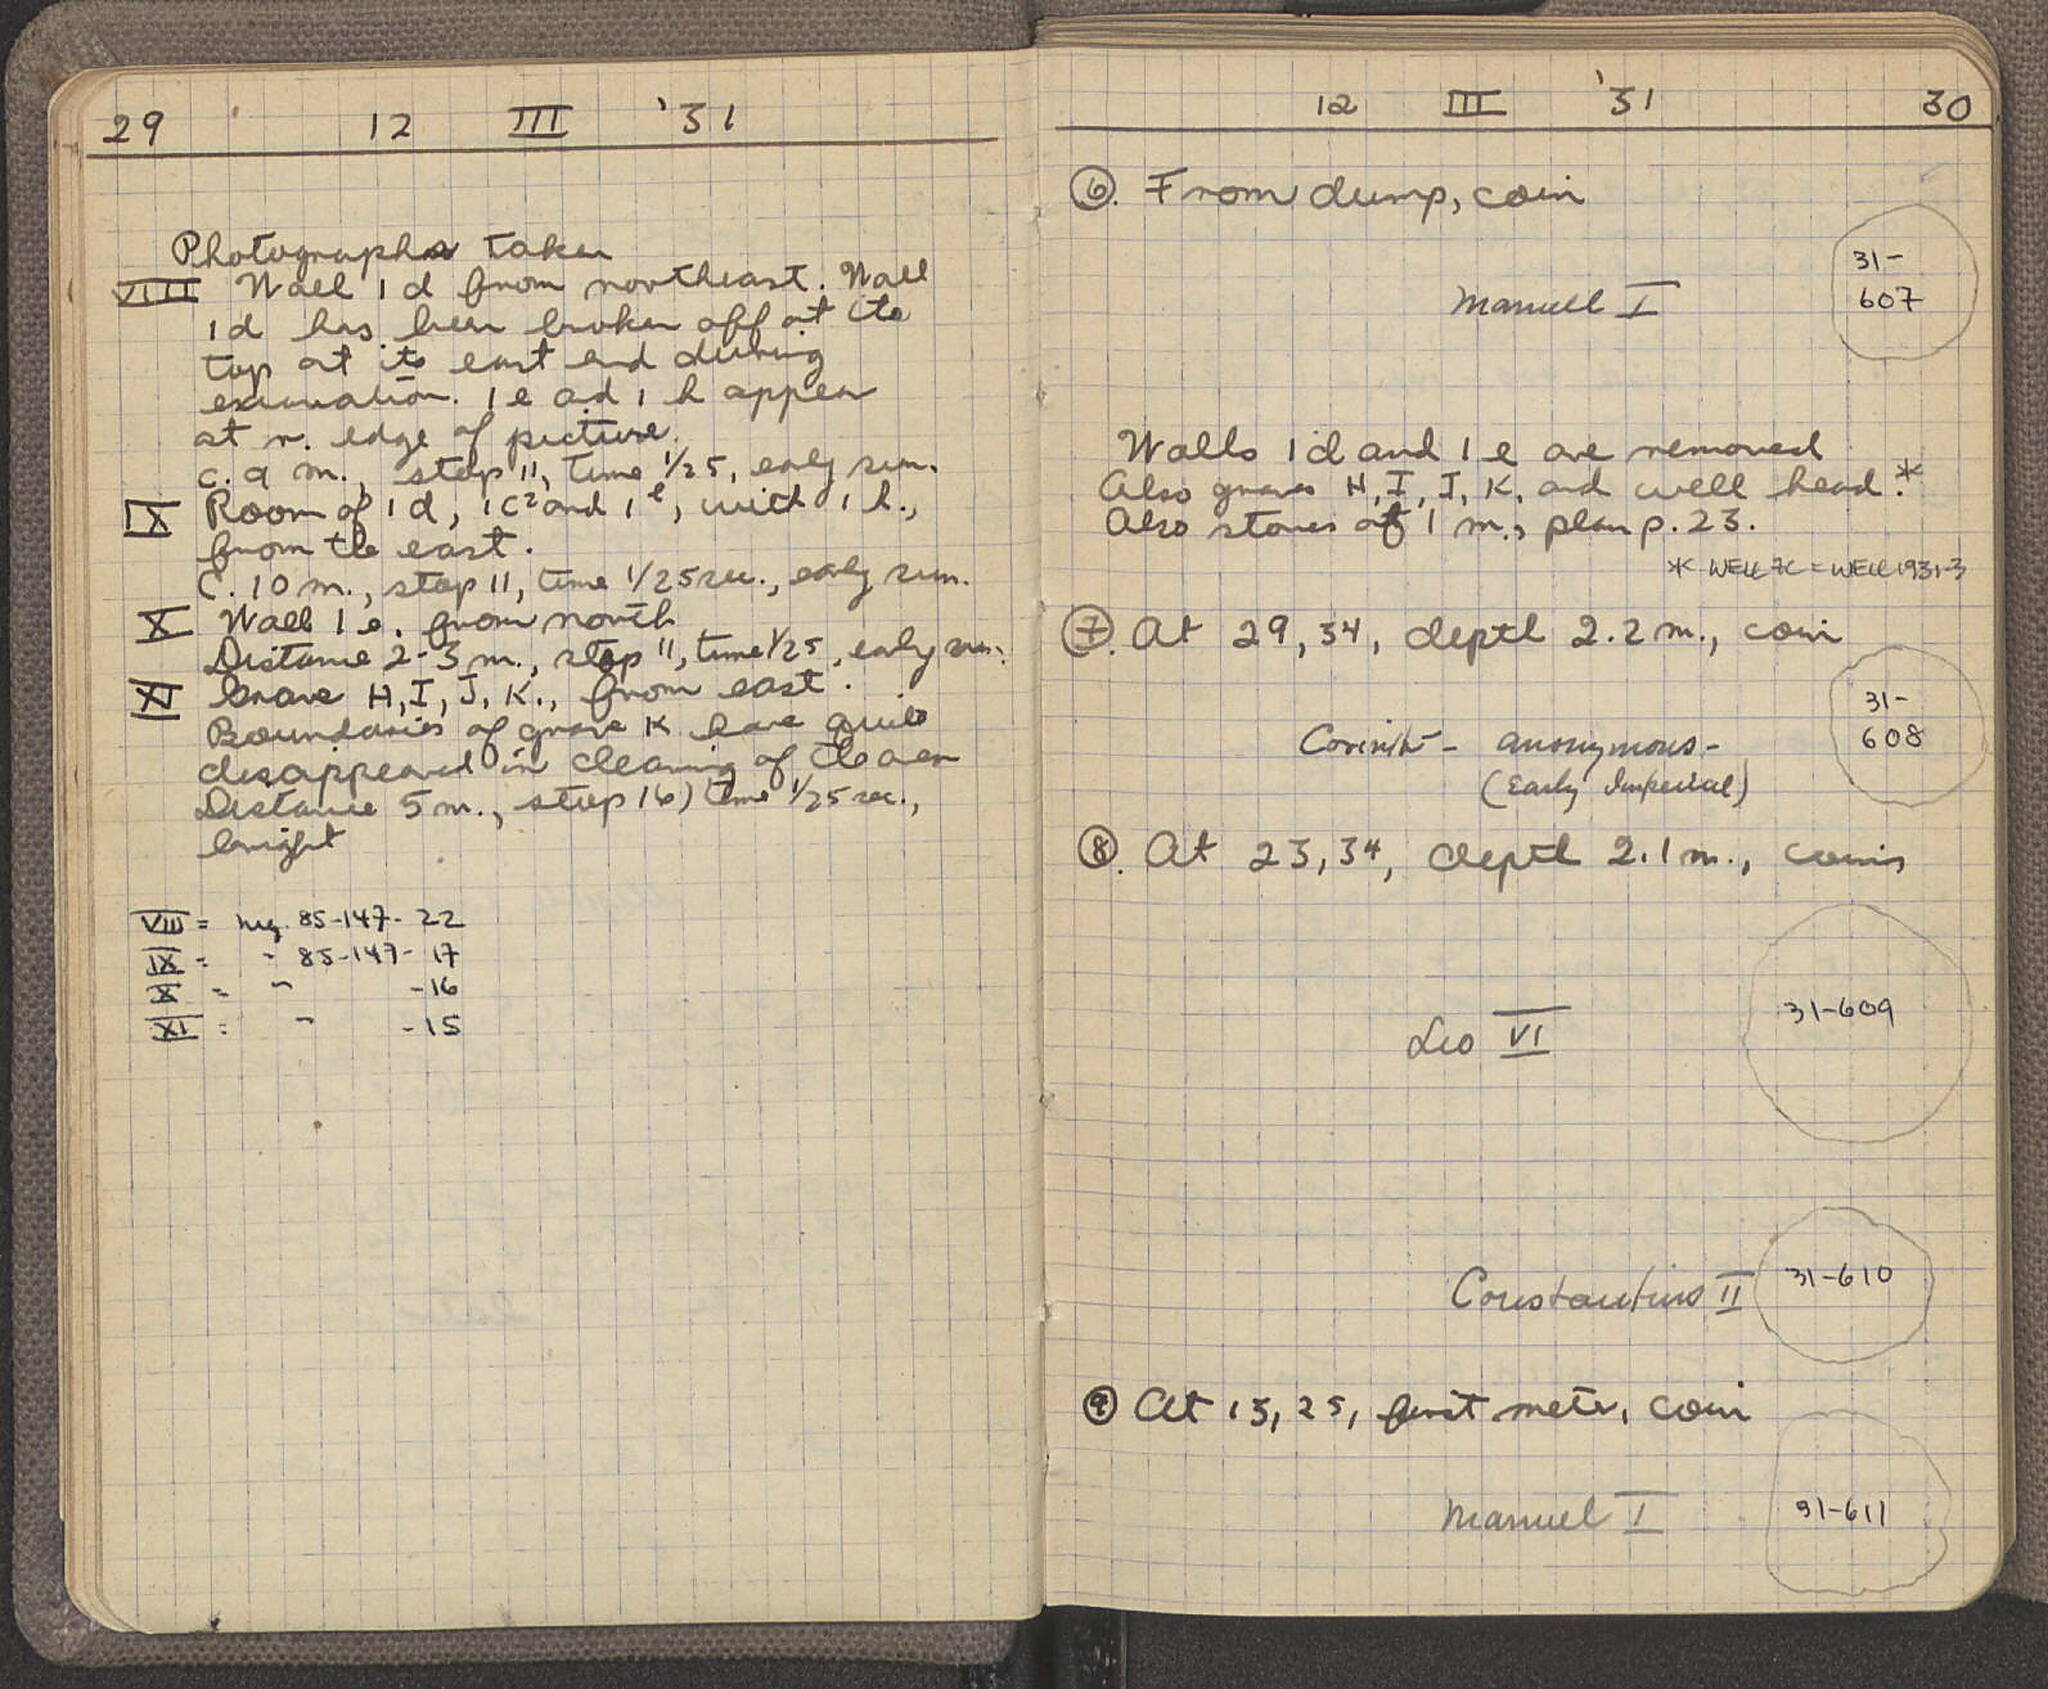 29 12 III '31
Photographs taken
VIII Wall 1d from northeast. Wall
1d has been broken off at its
top at its east end during
excavation. 1e and 1h appear
at r. edge of picture.
c. 9 m., stop 11, time 1/25, early sun.
IX Room of 1d, 1c² and 1e, with 1h.,
from the east.
C. 10 m., stop 11, time 1/25 sec., early sun.
X Wall 1e. from north
Distance 2-3 m., stop 11, time 1/25, early sun.
XI Grave H, I, J, K., from east.
Boundaries of grave K have quite
disappeared in cleaning of the area
Distance 5 m., stop 16, time 1/25 sec.,
bright
VIII = neg. 85-147-22
IX = " 85-147-17
X = " -16
XI = " -15
12 III '31 30
6. From dump, coin
31-
607
Manuel I
Walls 1d and 1e are removed
Also graves H, I, J, K, and well head.*
Also stones at 1 m., plan p. 23.
* WELL 7C = WELL 1931-3
7. At 29, 34, depth 2.2 m., coin
31-
608
Corinth - anonymous -
(Early Imperial)
8. At 23, 34, depth 2.1 m., coins
31-609
Leo VI
Constantius II 31-610
9 At 13, 25, first meter, coin
Manuel I 31-611